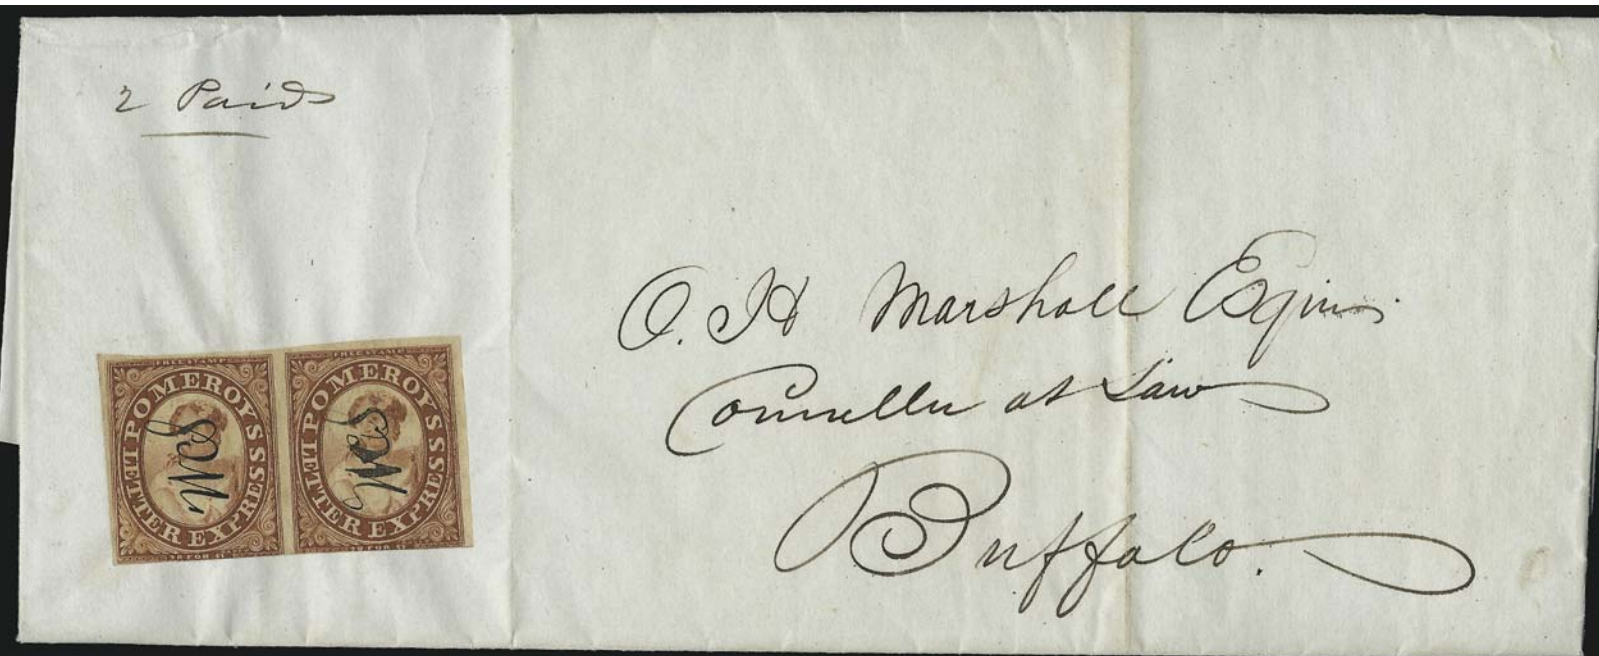 2 Paid
FREE STAMP
POMEROY'S LETTER EXPRESS
20 FOR $1
FREE STAMP
POMEROY'S LETTER EXPRESS
20 FOR $1
O. H Marshall Esquire
Counseller at Law
Buffalo.